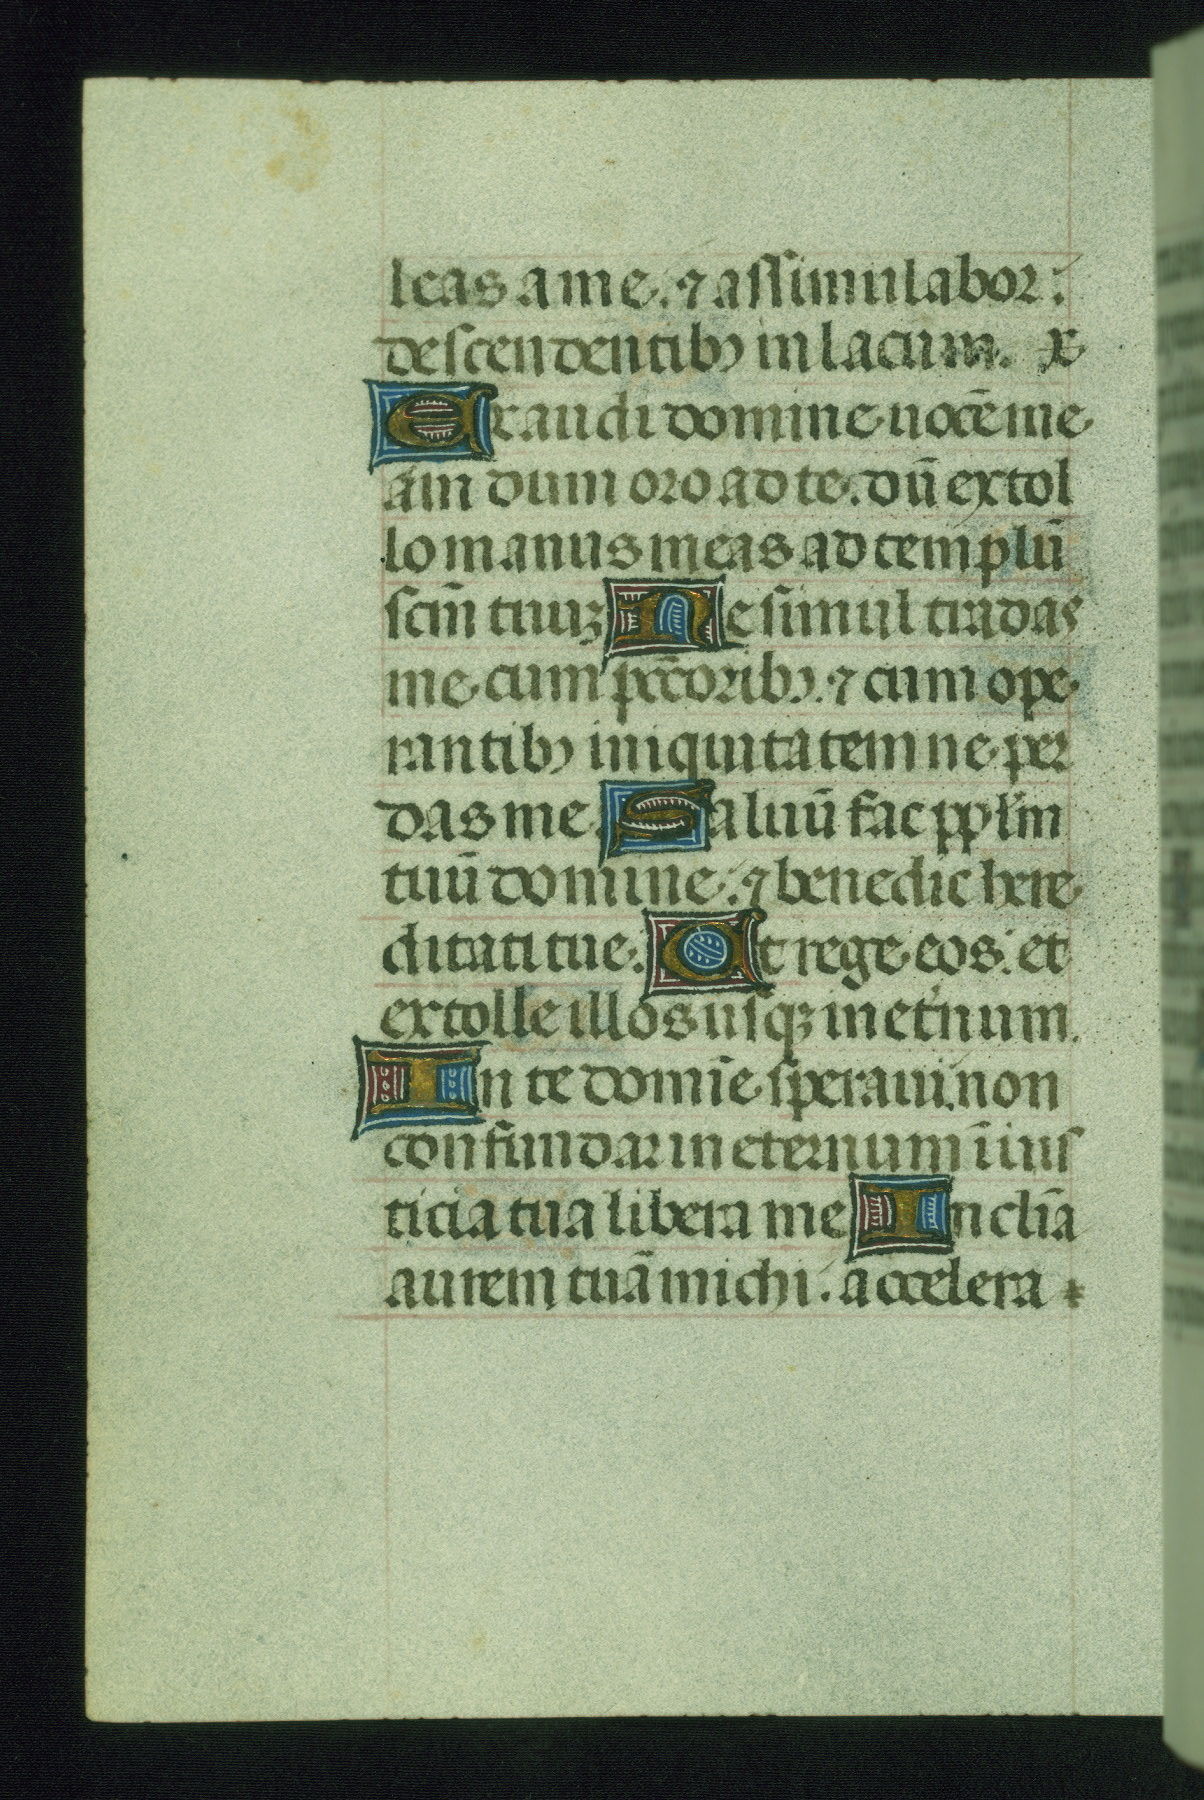 leas a me. ⁊ assimulabor:
descendentibꝯ in lacum.
Exaudi domine uocē me
am dum oro ad te. dū extol
lo manus meas ad templū
scm̄ tuuꝫ Ne simul tradas
me cum pcc̄oribꝯ. ⁊ cum ope
rantibꝯ iniquitatem ne per
das me. Saluū fac pplm̄
tuū domine. ⁊ benedic here
ditati tue. Et rege eos. et
extolle illos usqꝫ in et̓num.
In te domīe speraui. non
confundar in eternum ī ius
ticia tua libera me In clīa
aurem tuā michi. accelera